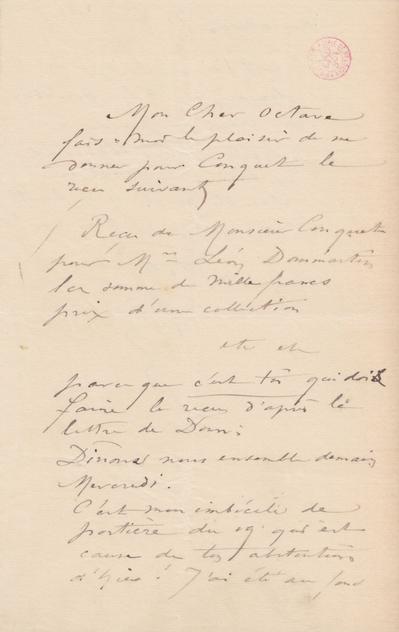 Mon Cher Octave
fais-moi le plaisir de me
donner pour Conquet le
reçu suivant
Reçu de Monsieur Conquet
pour Mme Léon Dommartin
la somme de mille francs
prix d'une collection
etc etc
parce que c'est toi qui dois
faire le reçu d'après la
lettre de Dom:
Dînons nous ensemble demain
Mercredi.
C'est mon imbécile de
portière du 19 qui est
cause de tes
d'hier! J'ai été au fond